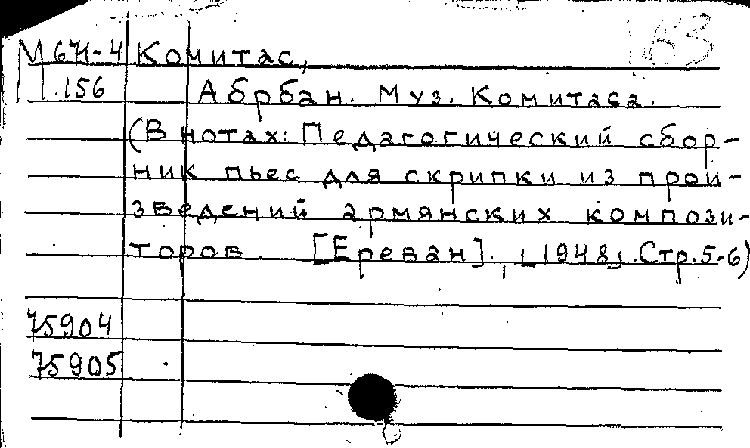 63
М 671-4 Комитас,
156 Абрбан. Муз. Комитаса.
(В нотах: Педагогический сбор-
ник пьес для скрипки из прои-
зведений армянских компози-
торов. [Ереван]. [1948]. Стр.5-6)
75904
75905